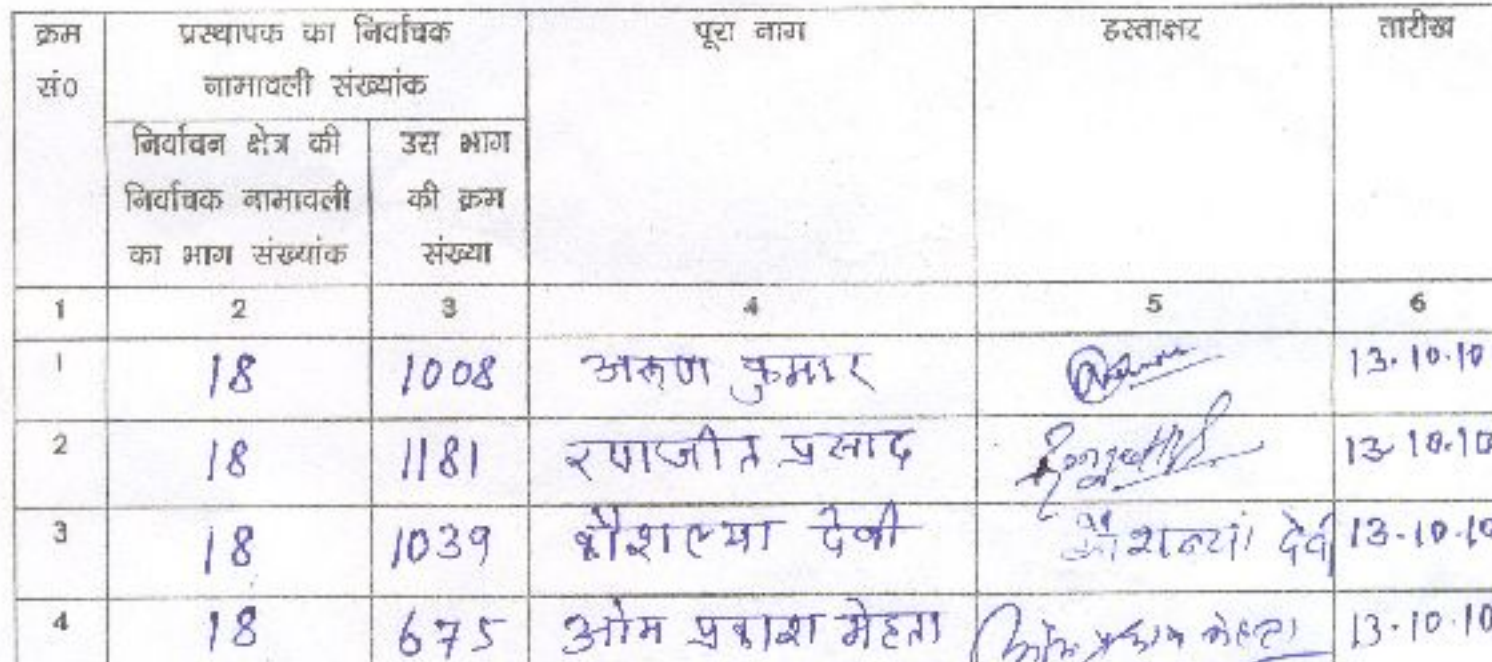 क्रम सं० प्रस्थापक का निर्वाचक नामावली संख्यांक पूरा नाम हस्ताक्षर तारीख
निर्वाचन क्षेत्र की निर्वाचक नामावली का भाग संख्यांक उस भाग की क्रम संख्या
1 2 3 4 5 6
1 18 1008 अरूण कुमार 13.10.10
2 18 1181 रणजीत प्रसाद 13.10.10
3 18 1039 कौशल्या देवी कौशल्या देवी 13.10.10
4 18 675 ओम प्रकाश मेहता ओम प्रकाश मेहता 13.10.10